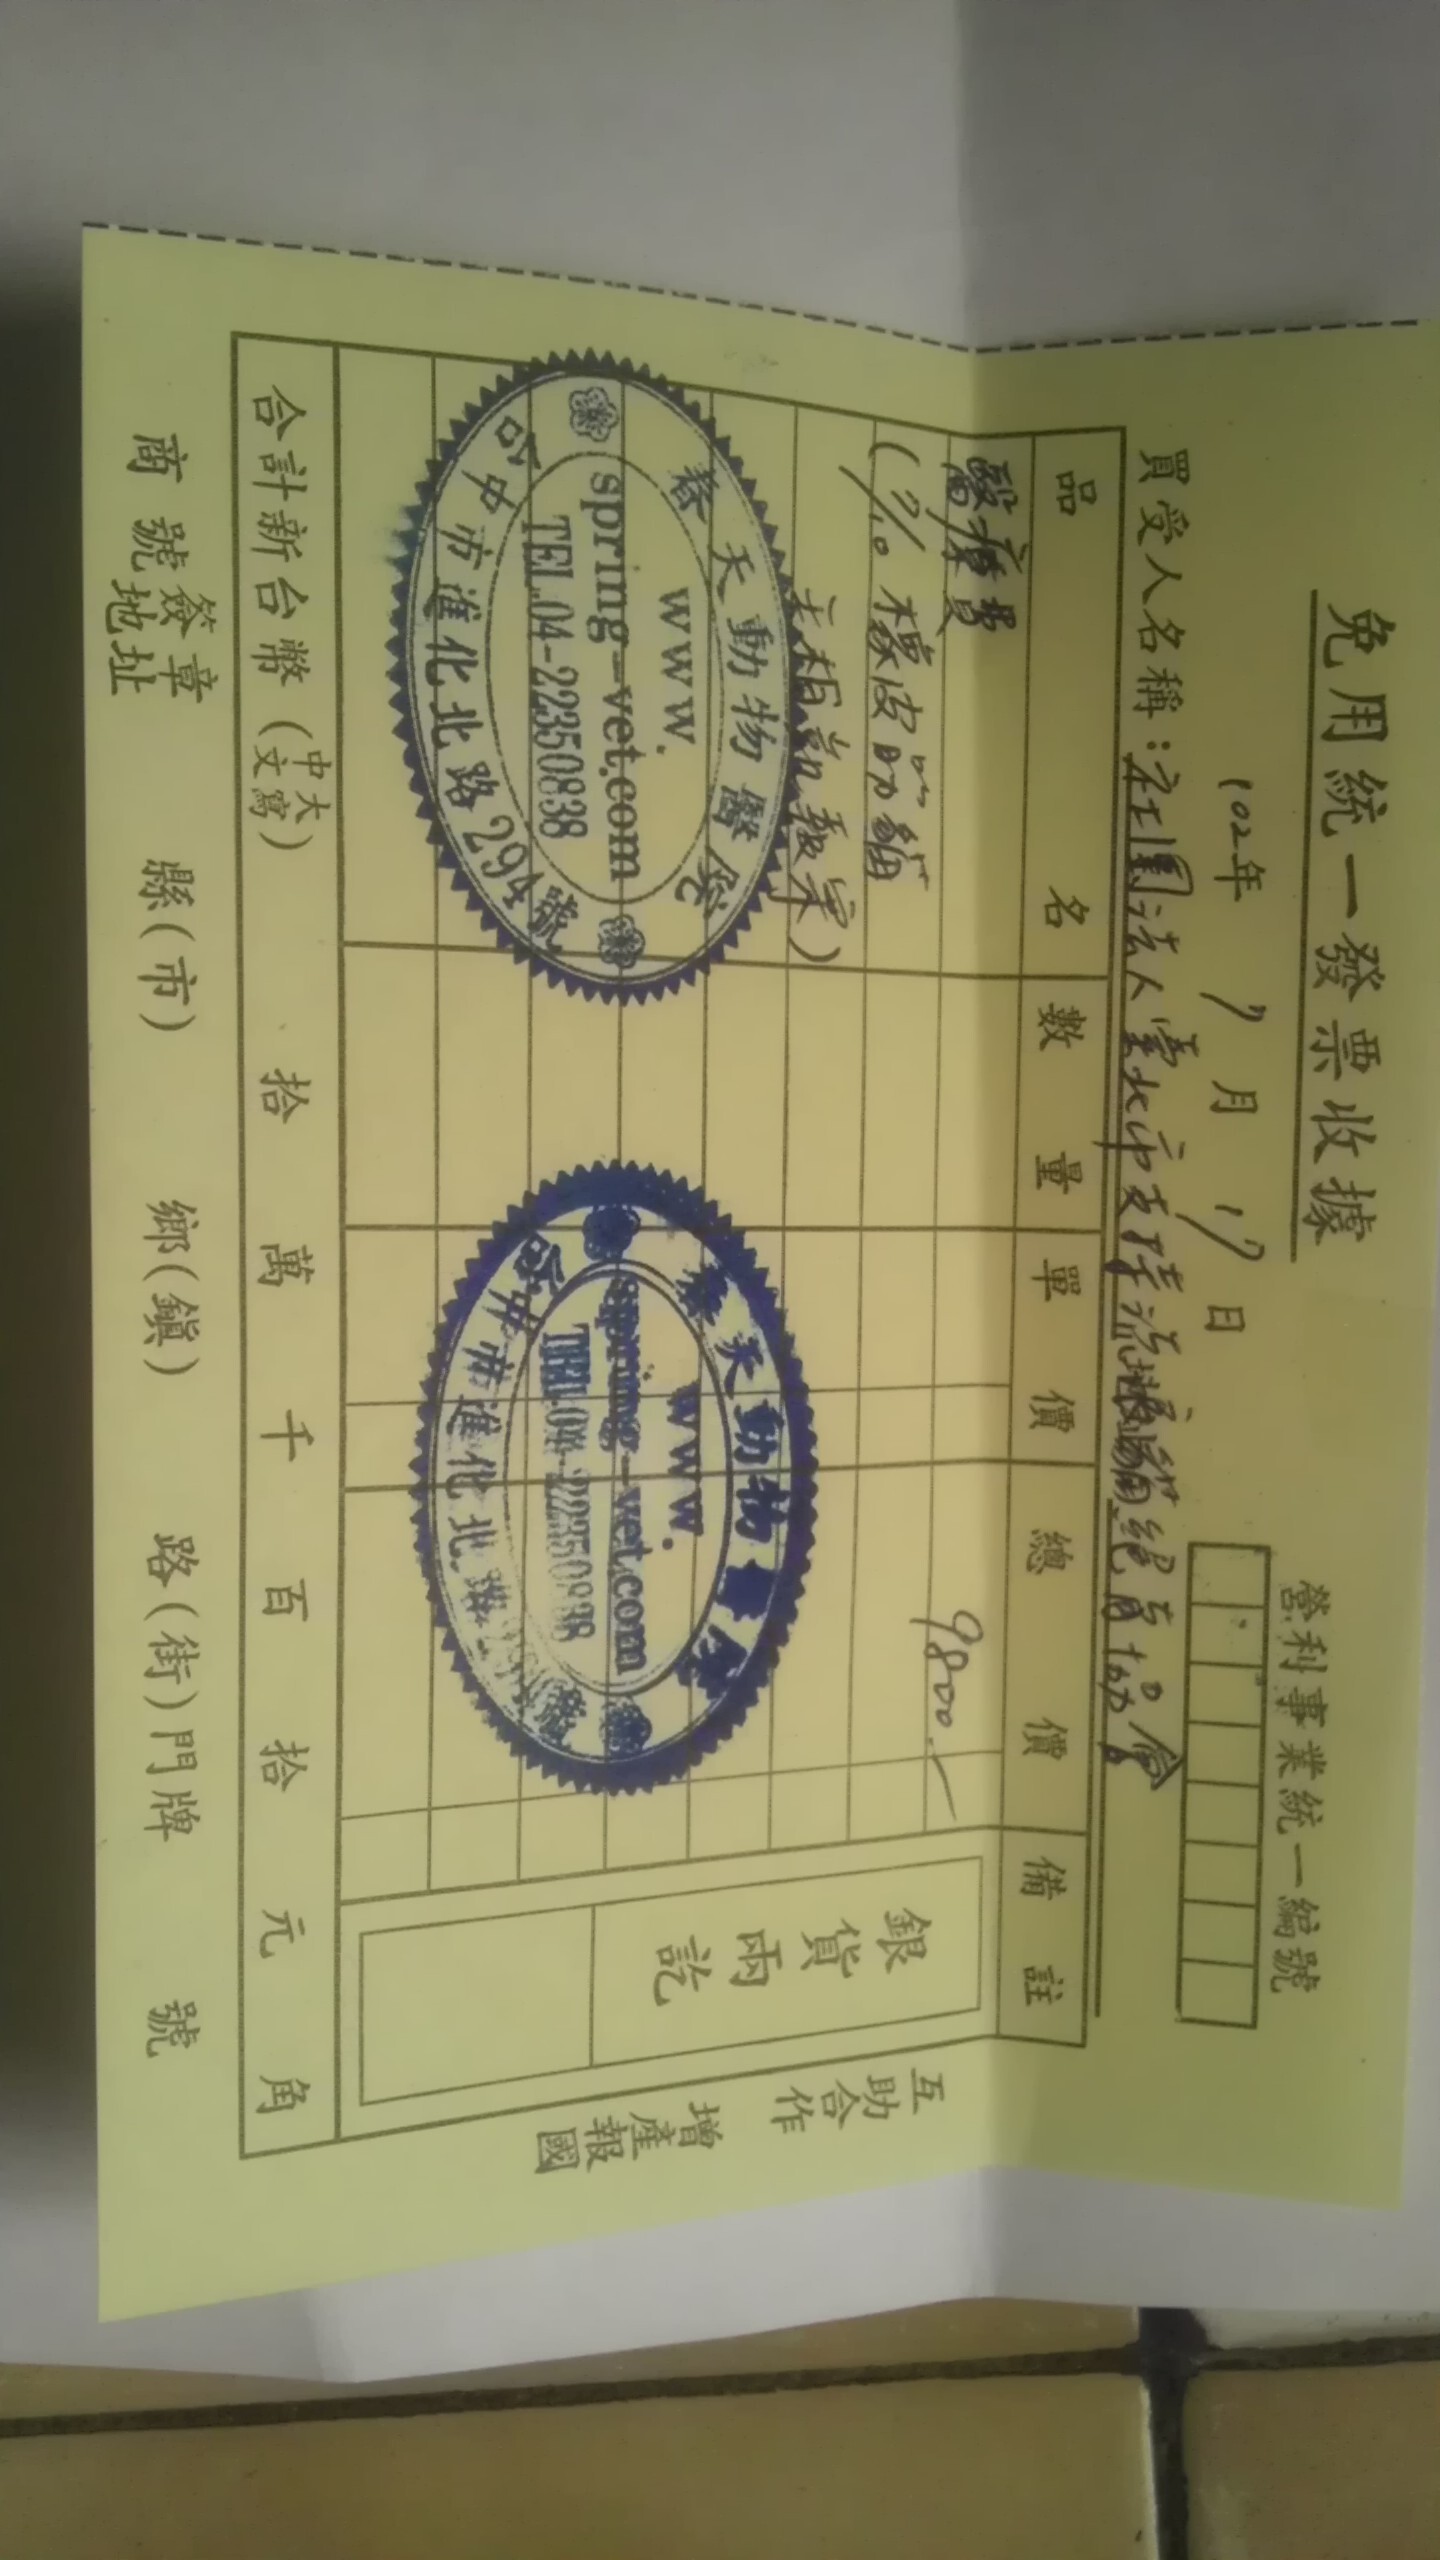 免用統一發票收據
營利事業統一編號
102年 7月 17日
買受人名稱：社團法人臺北市支持流浪貓絕育協會
品名 數量 單價 總價 備註
醫療費 9800.-
橡皮筋貓
銀貨兩訖
春天動物醫院
www.
spring-vet.com
TEL.04-22350838
台中市進化北路294號
春天動物醫院
www.
spring-vet.com
TEL.04-22350838
台中市進化北路294號
合計新台幣（中文大寫） 拾 萬 千 百 拾 元 角
商號簽章地址 縣（市） 鄉（鎮） 路（街）門牌 號
互助合作
增產報國